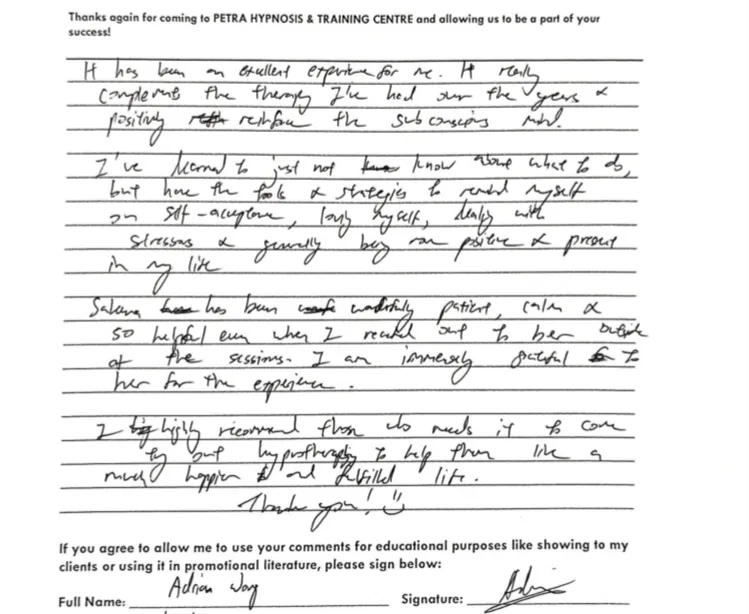 Thanks again for coming to PETRA HYPNOSIS & TRAINING CENTRE and allowing us to be a part of your
success!
It has been an excellent experience for me. It really
complements the therapy I've had over the years &
positively reinforce the subconscious mind.
I've learned to just not know about what to do,
but have the tools & strategies to remind myself
on self-acceptance, loving myself, dealing with
stressors & generally being more positive & present
in my life
has been wonderfully patient, calm &
so helpful even when I reached out to her outside
of the sessions. I am immensely grateful to
her for the experience.
I highly recommend those who needs it to come
try out hypnotherapy to help them live a
much happier and fulfilled life.
Thank you! ☺
If you agree to allow me to use your comments for educational purposes like showing to my
clients or using it in promotional literature, please sign below:
Full Name: Adrian Wong Signature: